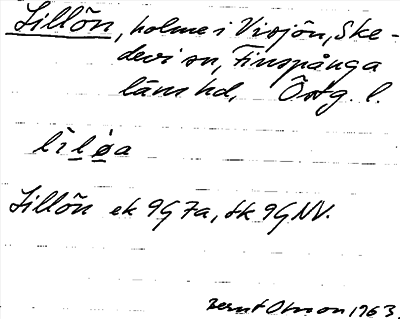 Lillön, holme i Visjön, Ske-
devi sn, Finspånga
läns hd, Östg. l.
lìlø̀a
Lillön ek 9G 7a, tk 9G NV.
Bernt Olsson 1963.